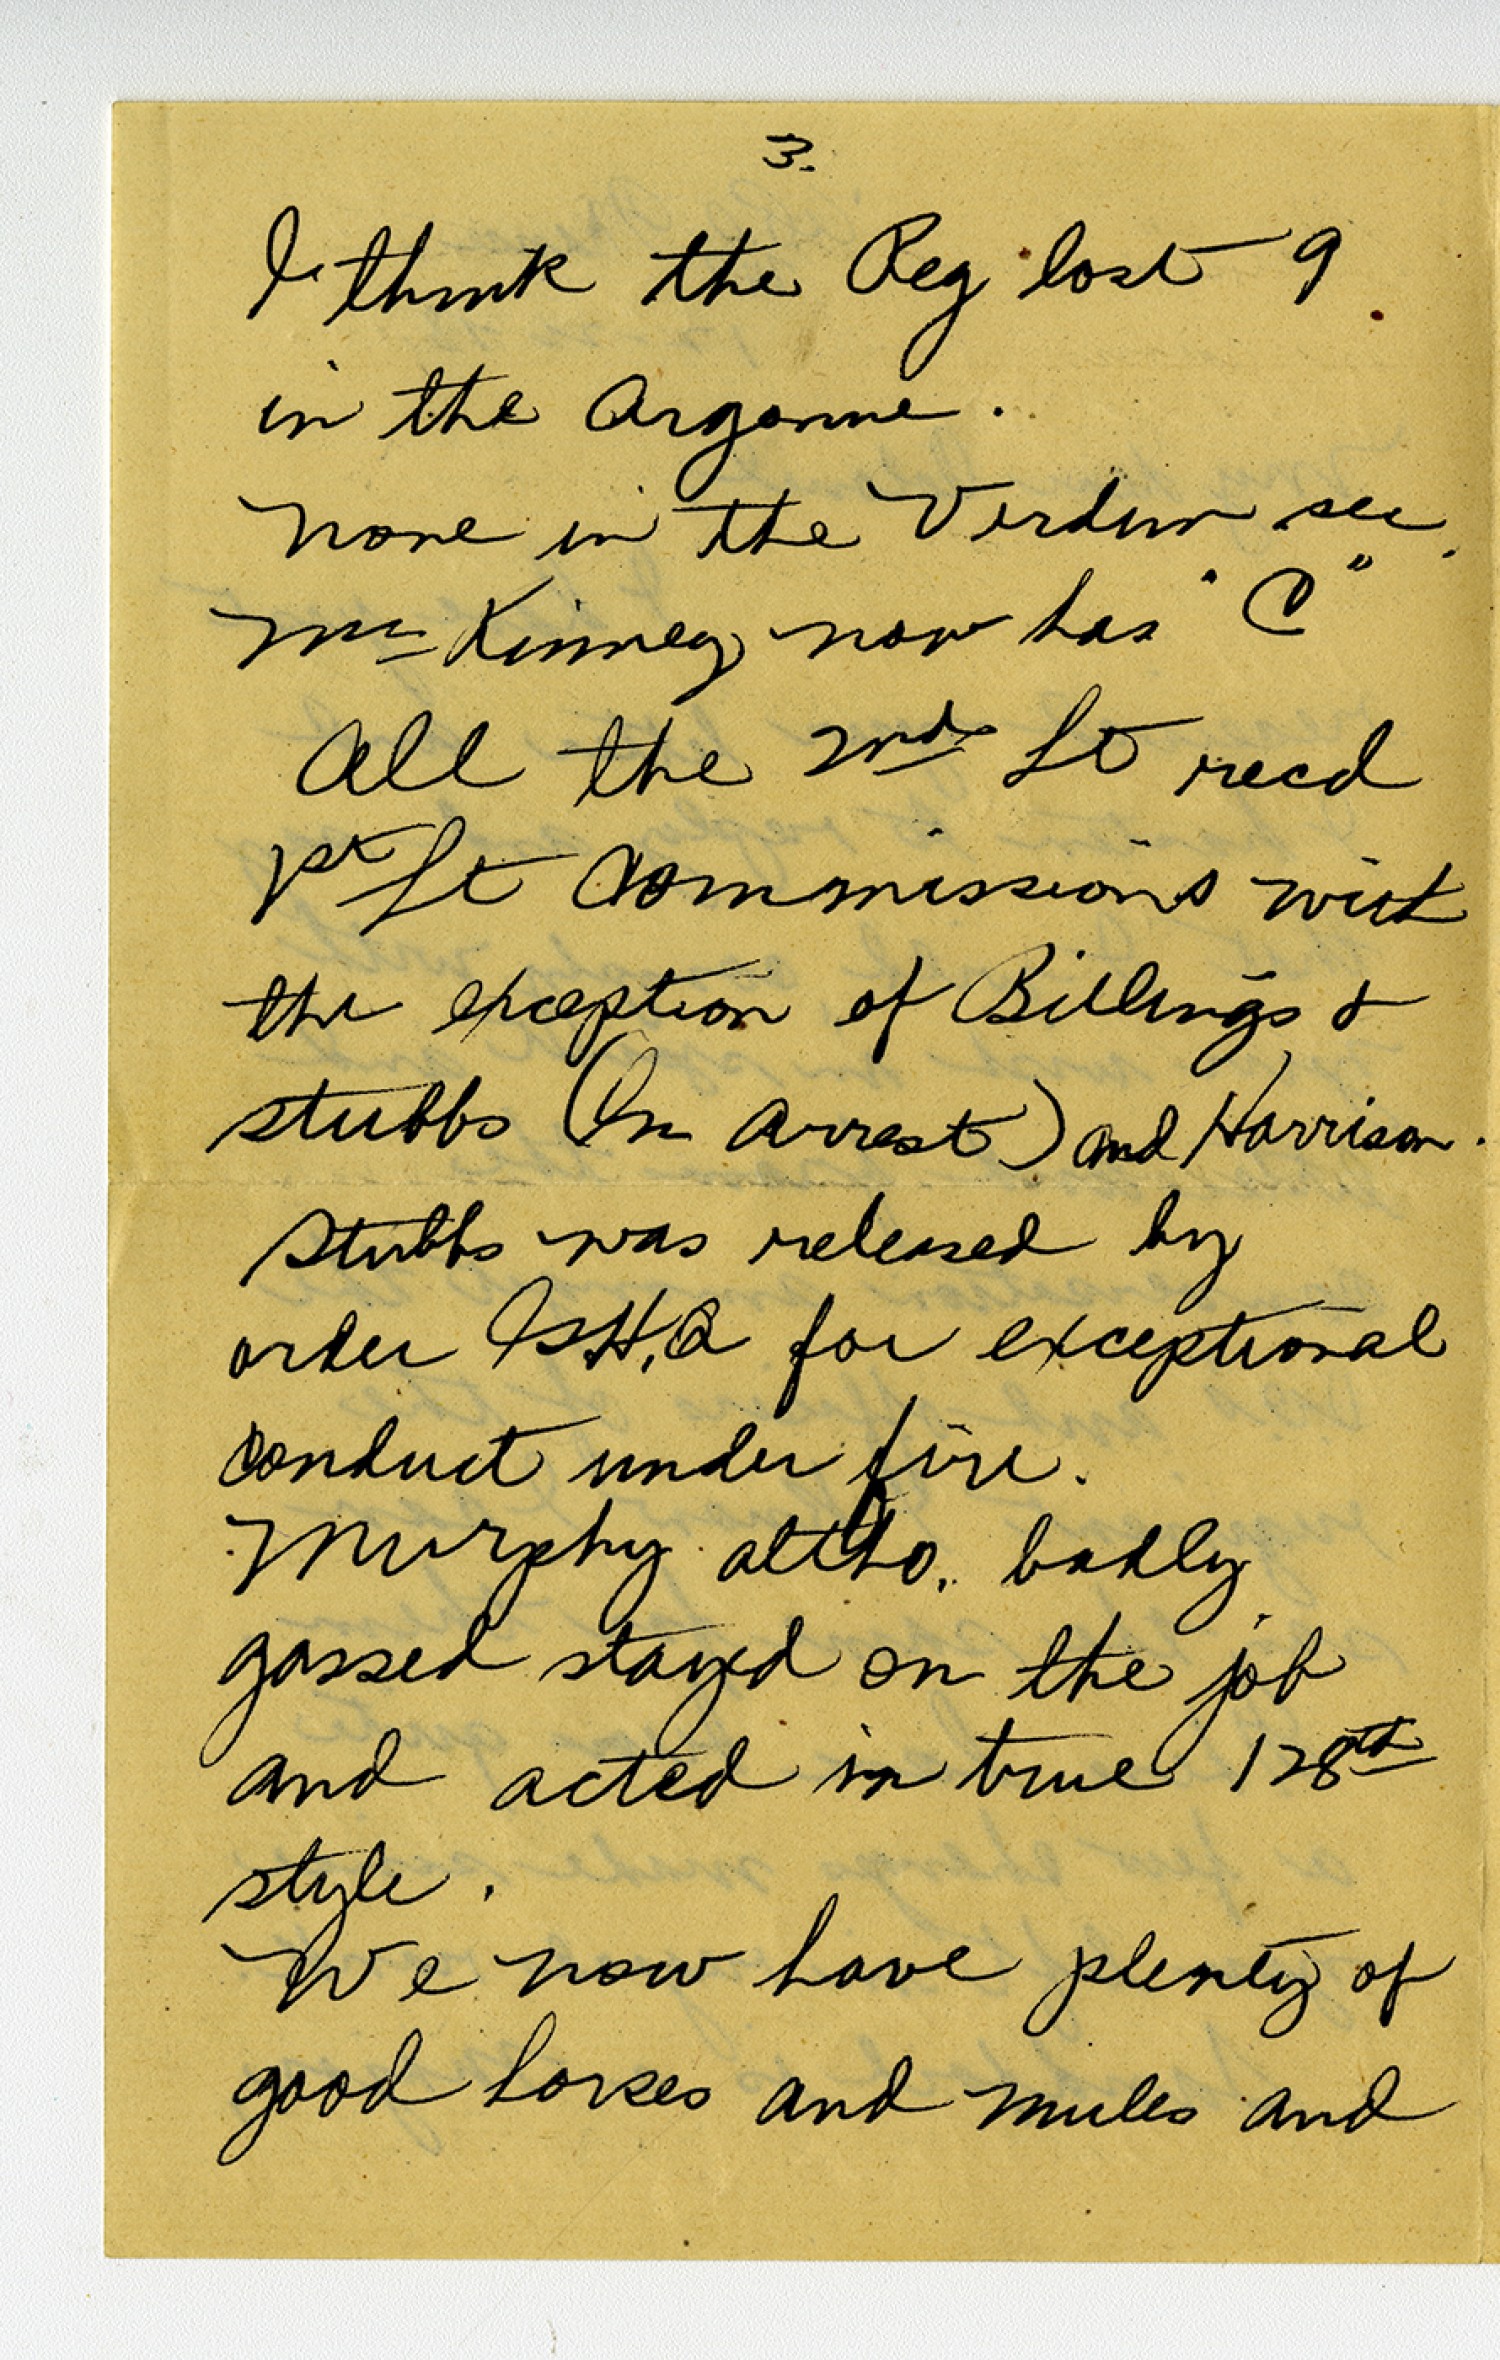 3.
I think the Reg lost 9
in the Argonne.
None in the Verdun sec.
McKinney now has "C"
All the 2nds Lt recd
1st Lt Commissions with
the exception of Billings &
Stubbs (In Arrest) and Harrison.
Stubbs was released by
order G.H.Q for exceptional
conduct under fire.
Murphy altho. badly
gassed stayed on the job
and acted in true 128th
style.
We now have plenty of
good horses and mules and